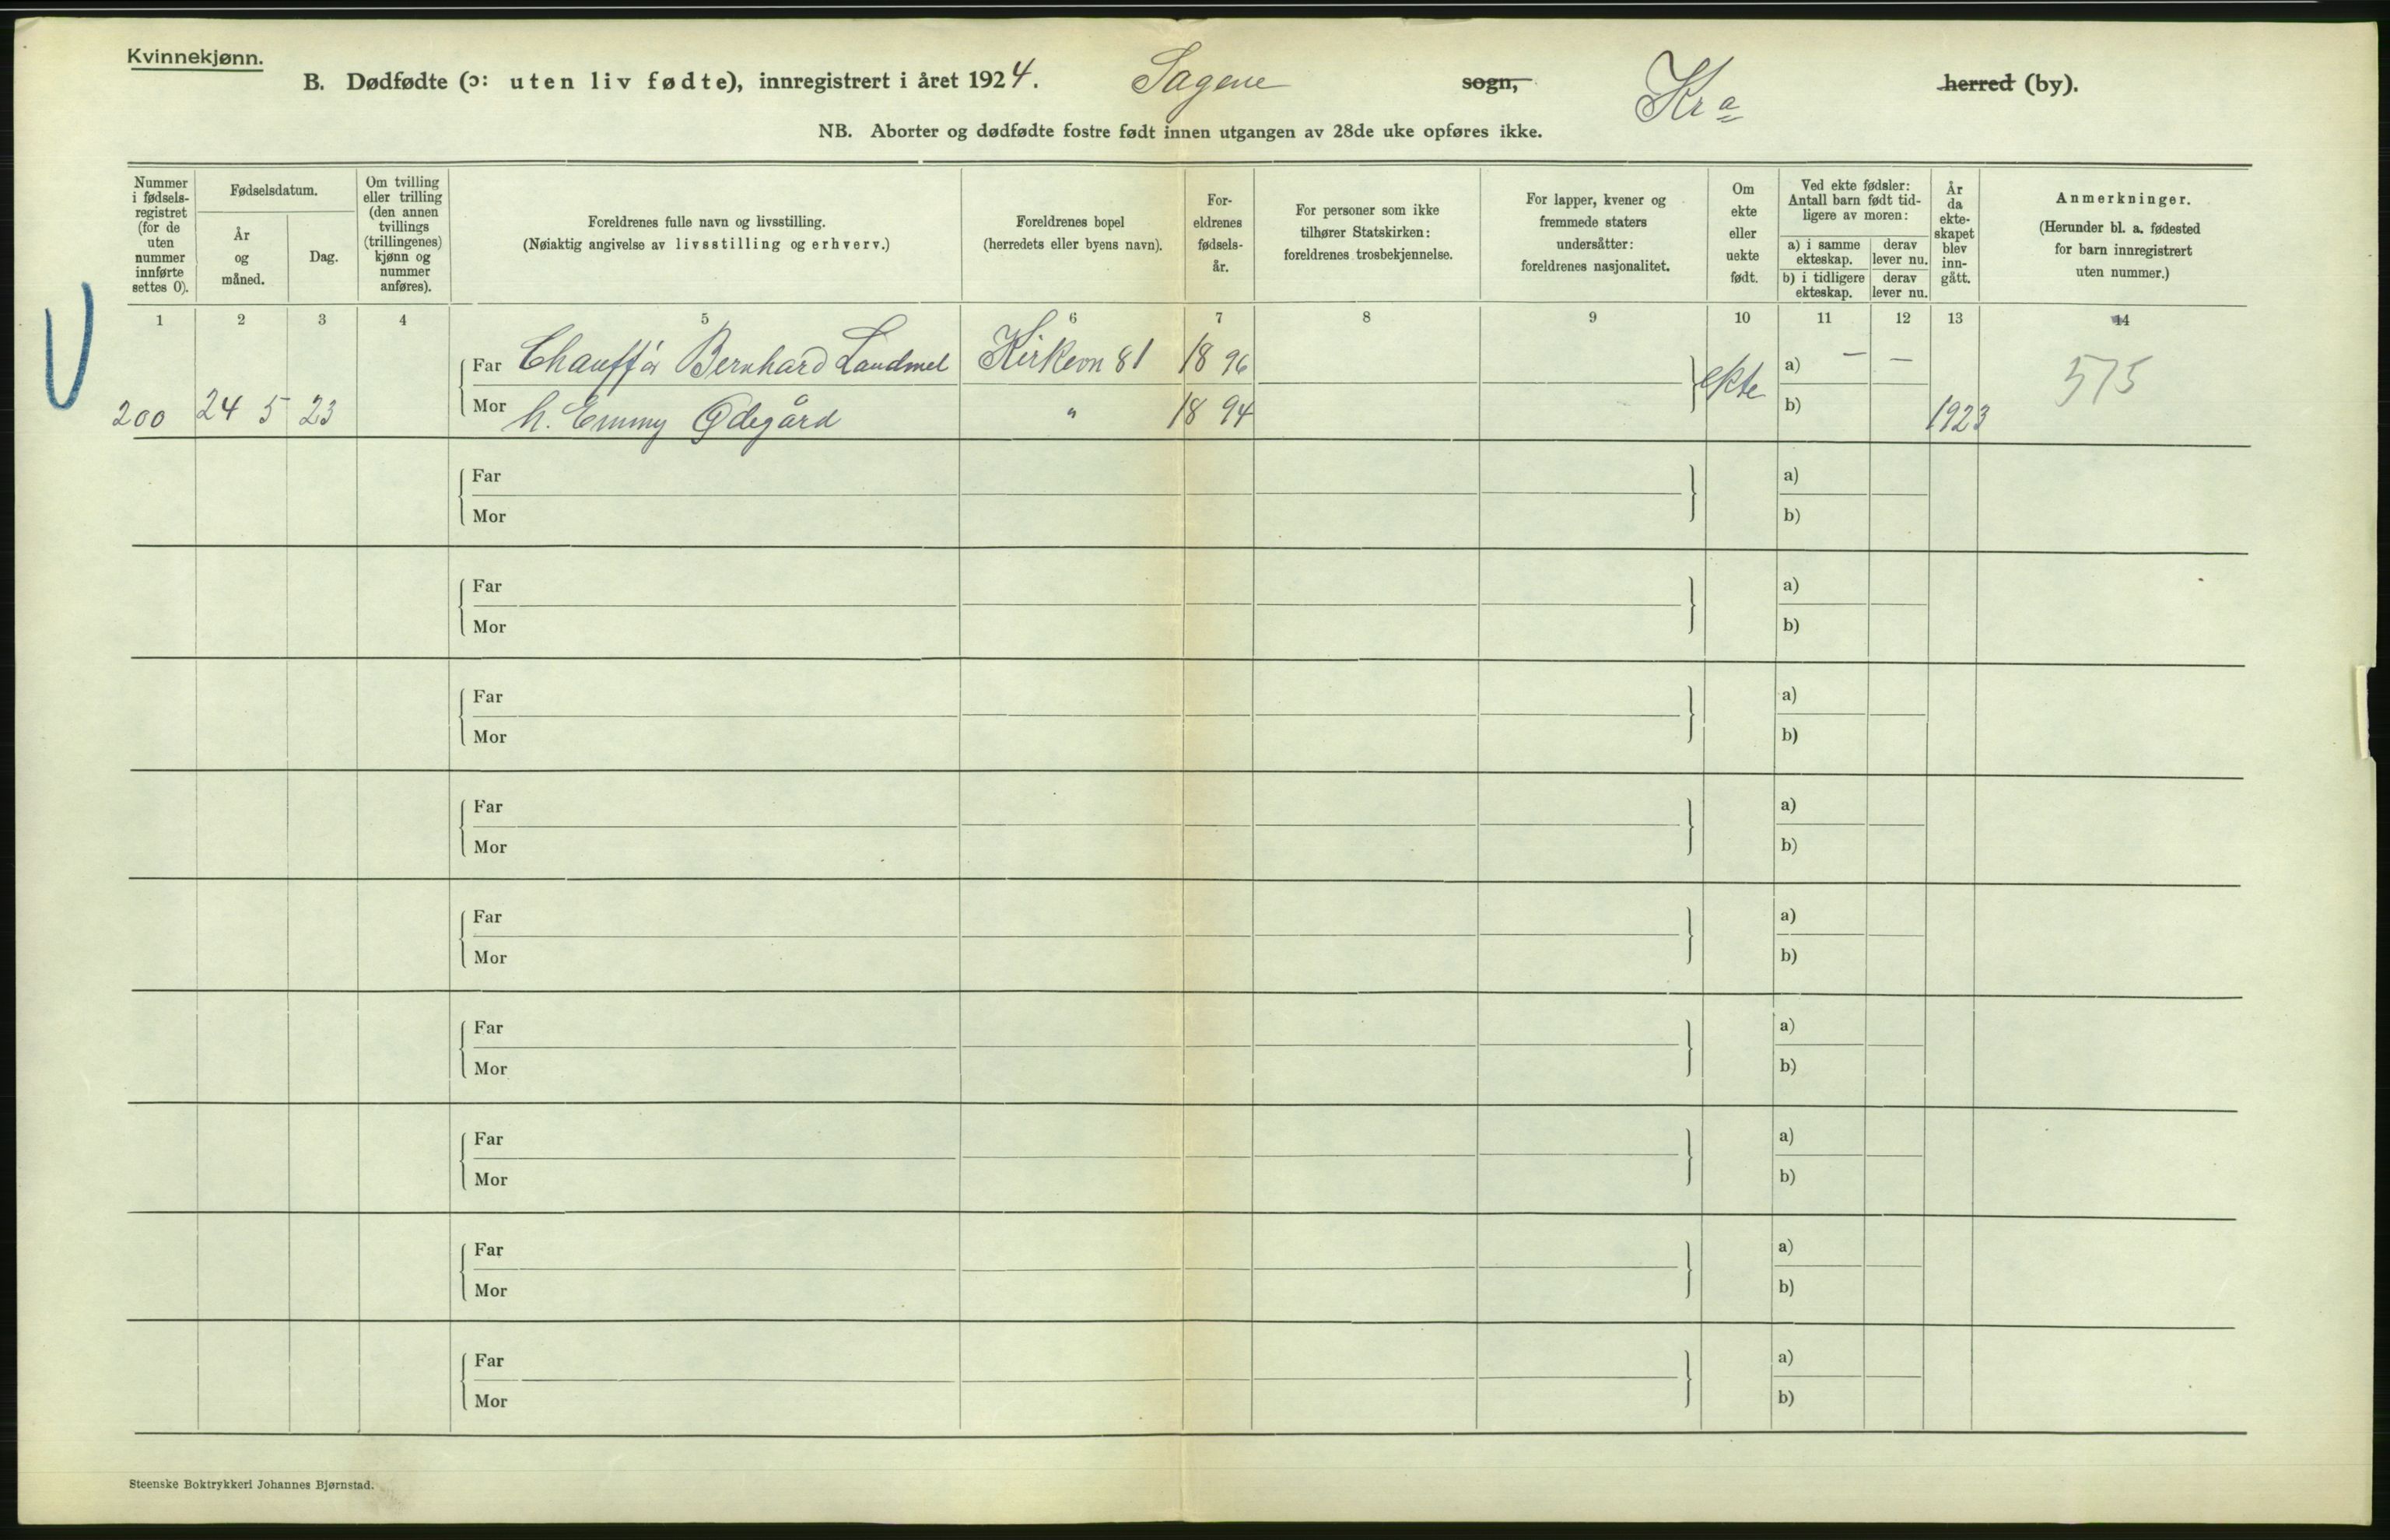 Kvinnekjønn.
B. Dødfødte (ɔ: uten liv fødte), innregistrert i året 1924. Sagene sogn, Kra herred (by).
NB. Aborter og dødfødte fostre født innen utgangen av 28de uke opføres ikke.
Nummer i fødsels-registret (for de uten nummer innførte settes 0).
Fødselsdatum.
År og måned.
Dag.
Om tvilling eller trilling (den annen tvillings (trillingenes) kjønn og nummer anføres).
Foreldrenes fulle navn og livsstilling.
(Nøiaktig angivelse av livsstilling og erhverv.)
Foreldrenes bopel
(herredets eller byens navn).
For-eldrenes fødsels-år.
For personer som ikke tilhører Statskirken: foreldrenes trosbekjennelse.
For lapper, kvener og fremmede staters undersåtter: foreldrenes nasjonalitet.
Om ekte eller uekte født.
Ved ekte fødsler: Antall barn født tid-ligere av moren:
a) i samme ekteskap.
derav lever nu.
b) i tidligere ekteskap.
derav lever nu.
År da ekte-skapet blev inn-gått.
Anmerkninger.
(Herunder bl. a. fødested for barn innregistrert uten nummer.)
1 2 3 4 5 6 7 8 9 10 11 12 13 14
Far Chauffør Bernhard Landmel Kirkevn 81 1896 ekte a) — — 575
200 24 5 23 Mor h. Emmy Ødegård " 1894 b) 1923
Far a)
Mor b)
Far a)
Mor b)
Far a)
Mor b)
Far a)
Mor b)
Far a)
Mor b)
Far a)
Mor b)
Far a)
Mor b)
Far a)
Mor b)
Far a)
Mor b)
Steenske Boktrykkeri Johannes Bjørnstad.